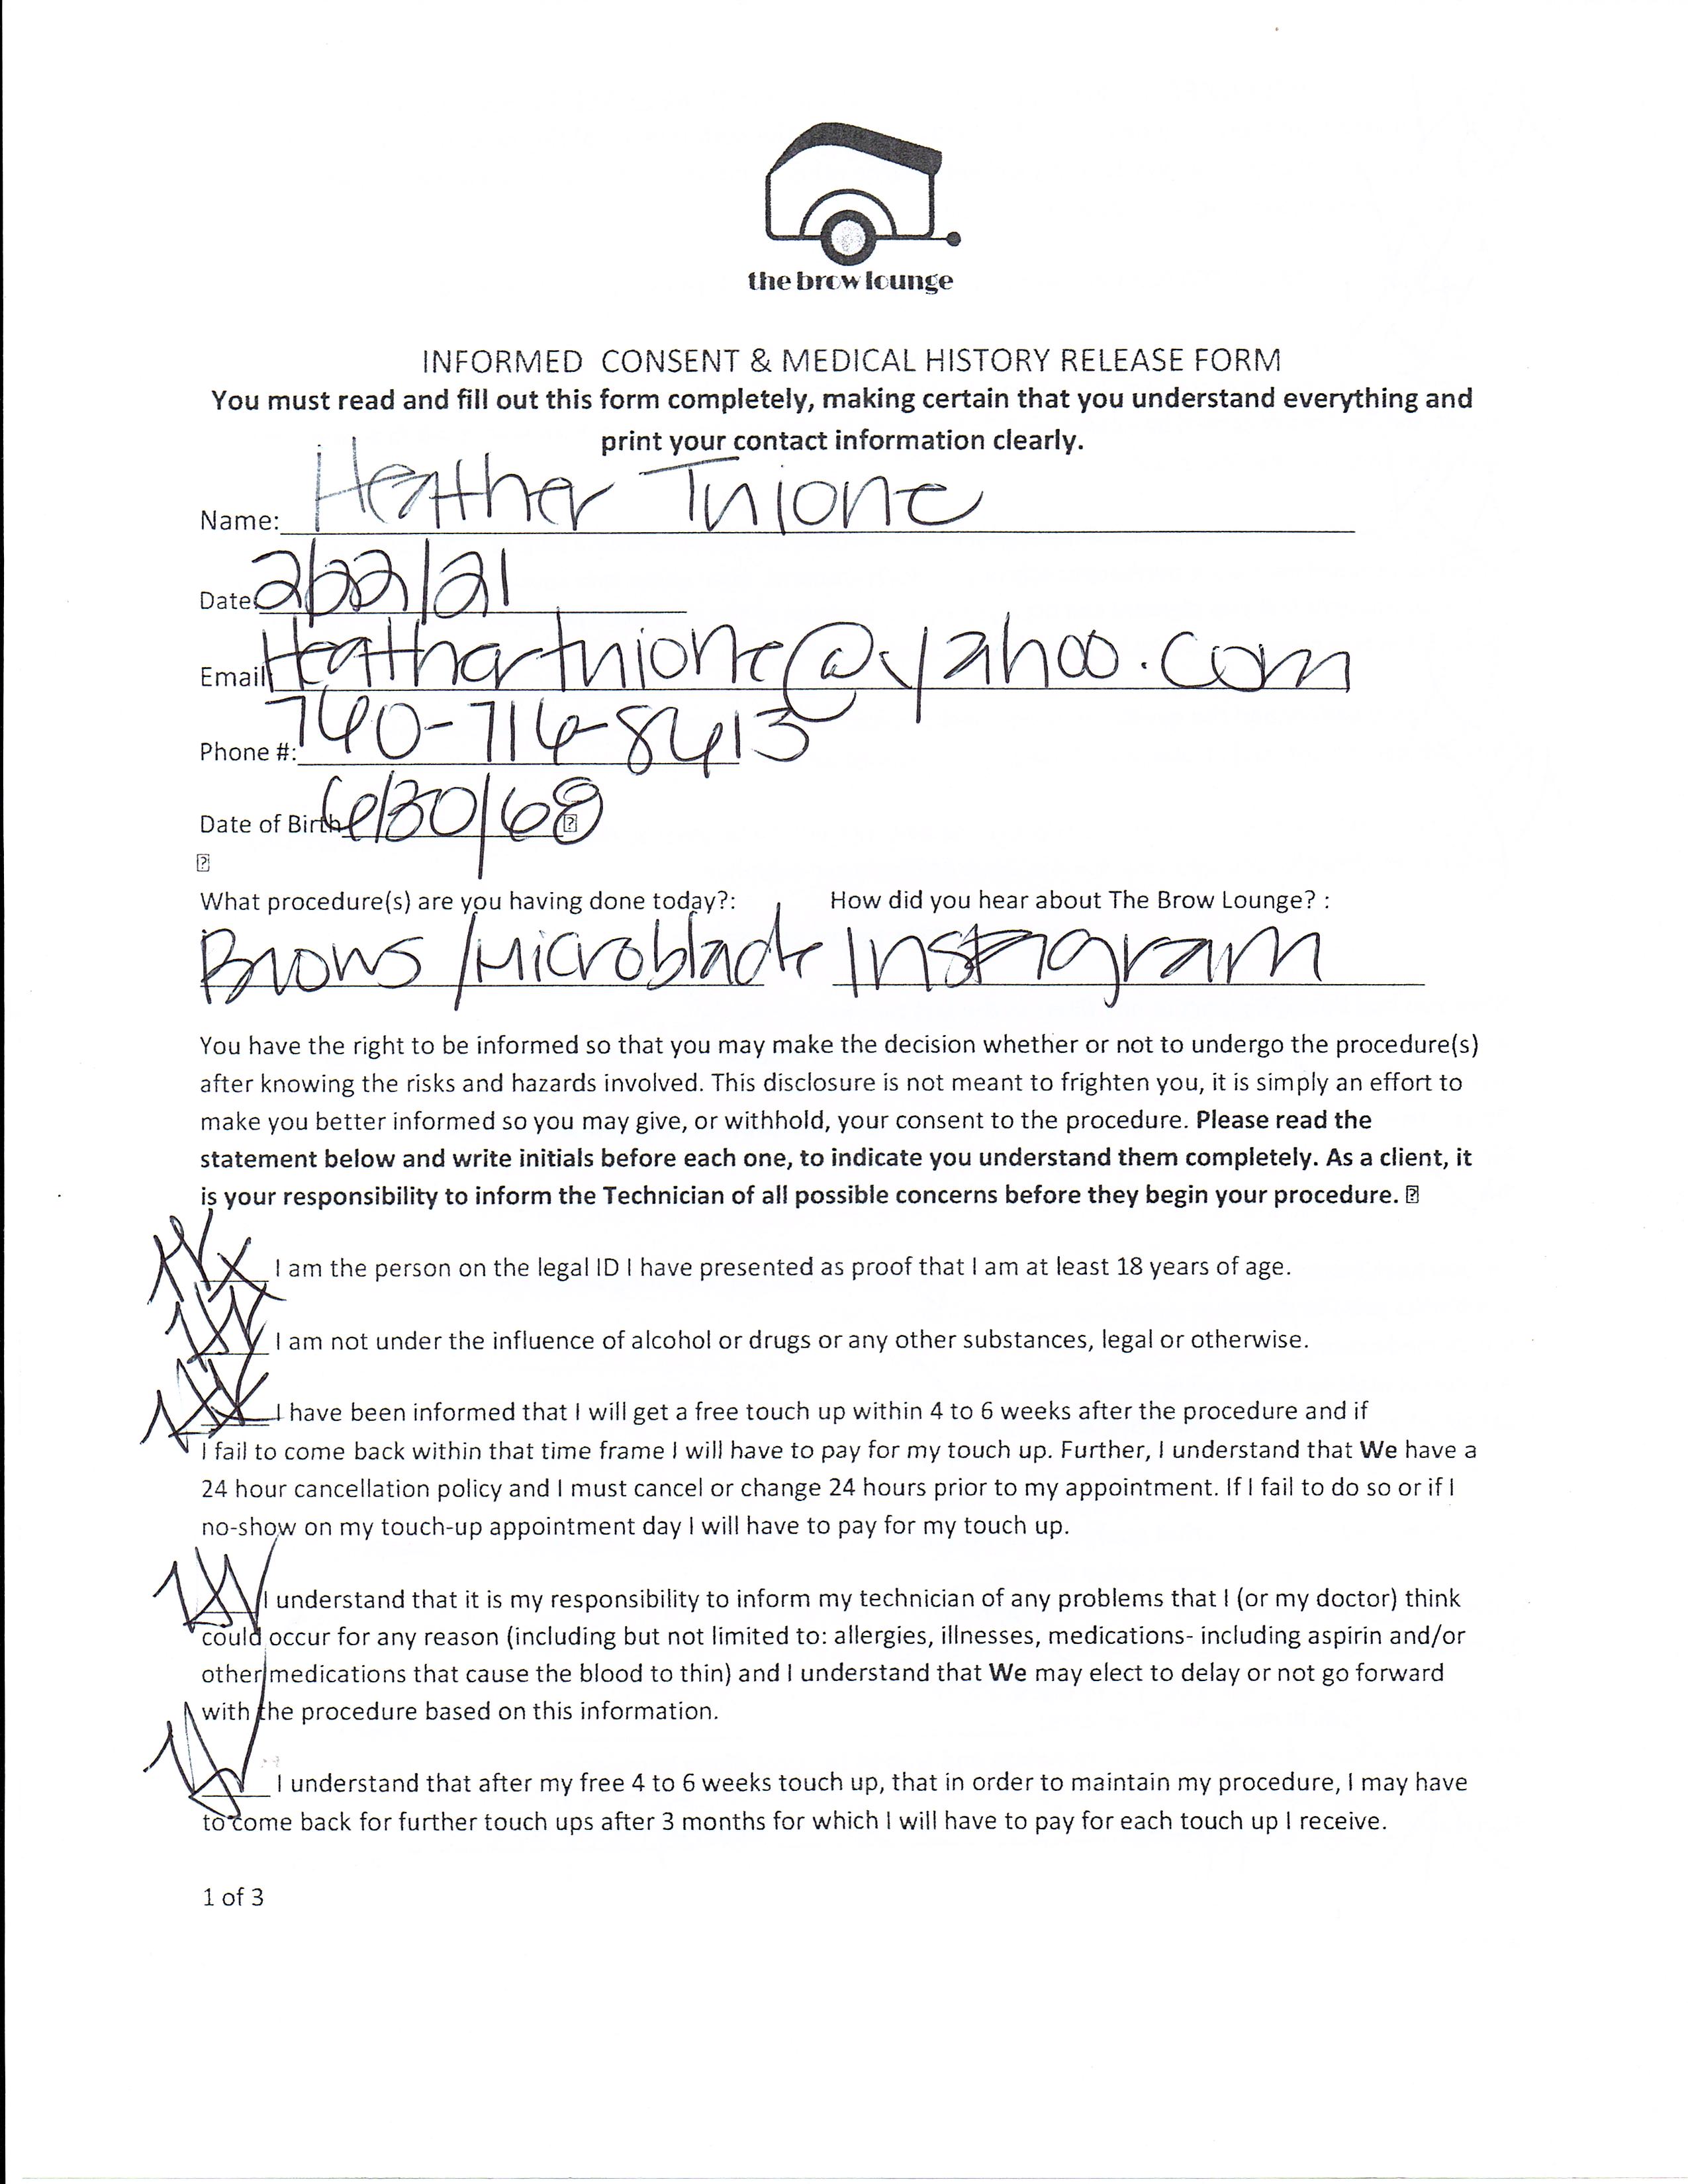 the brow lounge
INFORMED CONSENT & MEDICAL HISTORY RELEASE FORM
You must read and fill out this form completely, making certain that you understand everything and
print your contact information clearly.
Name: Heather Tnione
Date 2/22/21
Email Heathertnione@yahoo.com
Phone #: 740-716-8413
Date of Birth 6/30/68
What procedure(s) are you having done today?: How did you hear about The Brow Lounge? :
Brows /Microblade Instagram
You have the right to be informed so that you may make the decision whether or not to undergo the procedure(s)
after knowing the risks and hazards involved. This disclosure is not meant to frighten you, it is simply an effort to
make you better informed so you may give, or withhold, your consent to the procedure. Please read the
statement below and write initials before each one, to indicate you understand them completely. As a client, it
is your responsibility to inform the Technician of all possible concerns before they begin your procedure.
I am the person on the legal ID I have presented as proof that I am at least 18 years of age.
I am not under the influence of alcohol or drugs or any other substances, legal or otherwise.
I have been informed that I will get a free touch up within 4 to 6 weeks after the procedure and if
I fail to come back within that time frame I will have to pay for my touch up. Further, I understand that We have a
24 hour cancellation policy and I must cancel or change 24 hours prior to my appointment. If I fail to do so or if I
no-show on my touch-up appointment day I will have to pay for my touch up.
I understand that it is my responsibility to inform my technician of any problems that I (or my doctor) think
could occur for any reason (including but not limited to: allergies, illnesses, medications- including aspirin and/or
other medications that cause the blood to thin) and I understand that We may elect to delay or not go forward
with the procedure based on this information.
I understand that after my free 4 to 6 weeks touch up, that in order to maintain my procedure, I may have
to come back for further touch ups after 3 months for which I will have to pay for each touch up I receive.
1 of 3